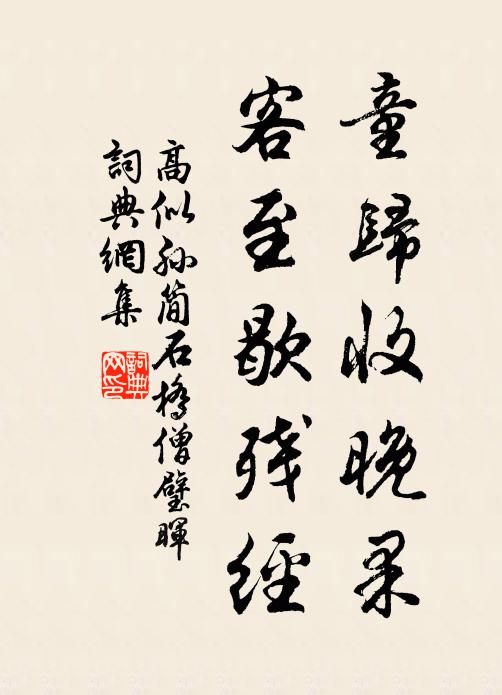 童歸收晚果
客至歇殘經
高似孫簡石橋僧璧暉
詞典網集
詞典网印